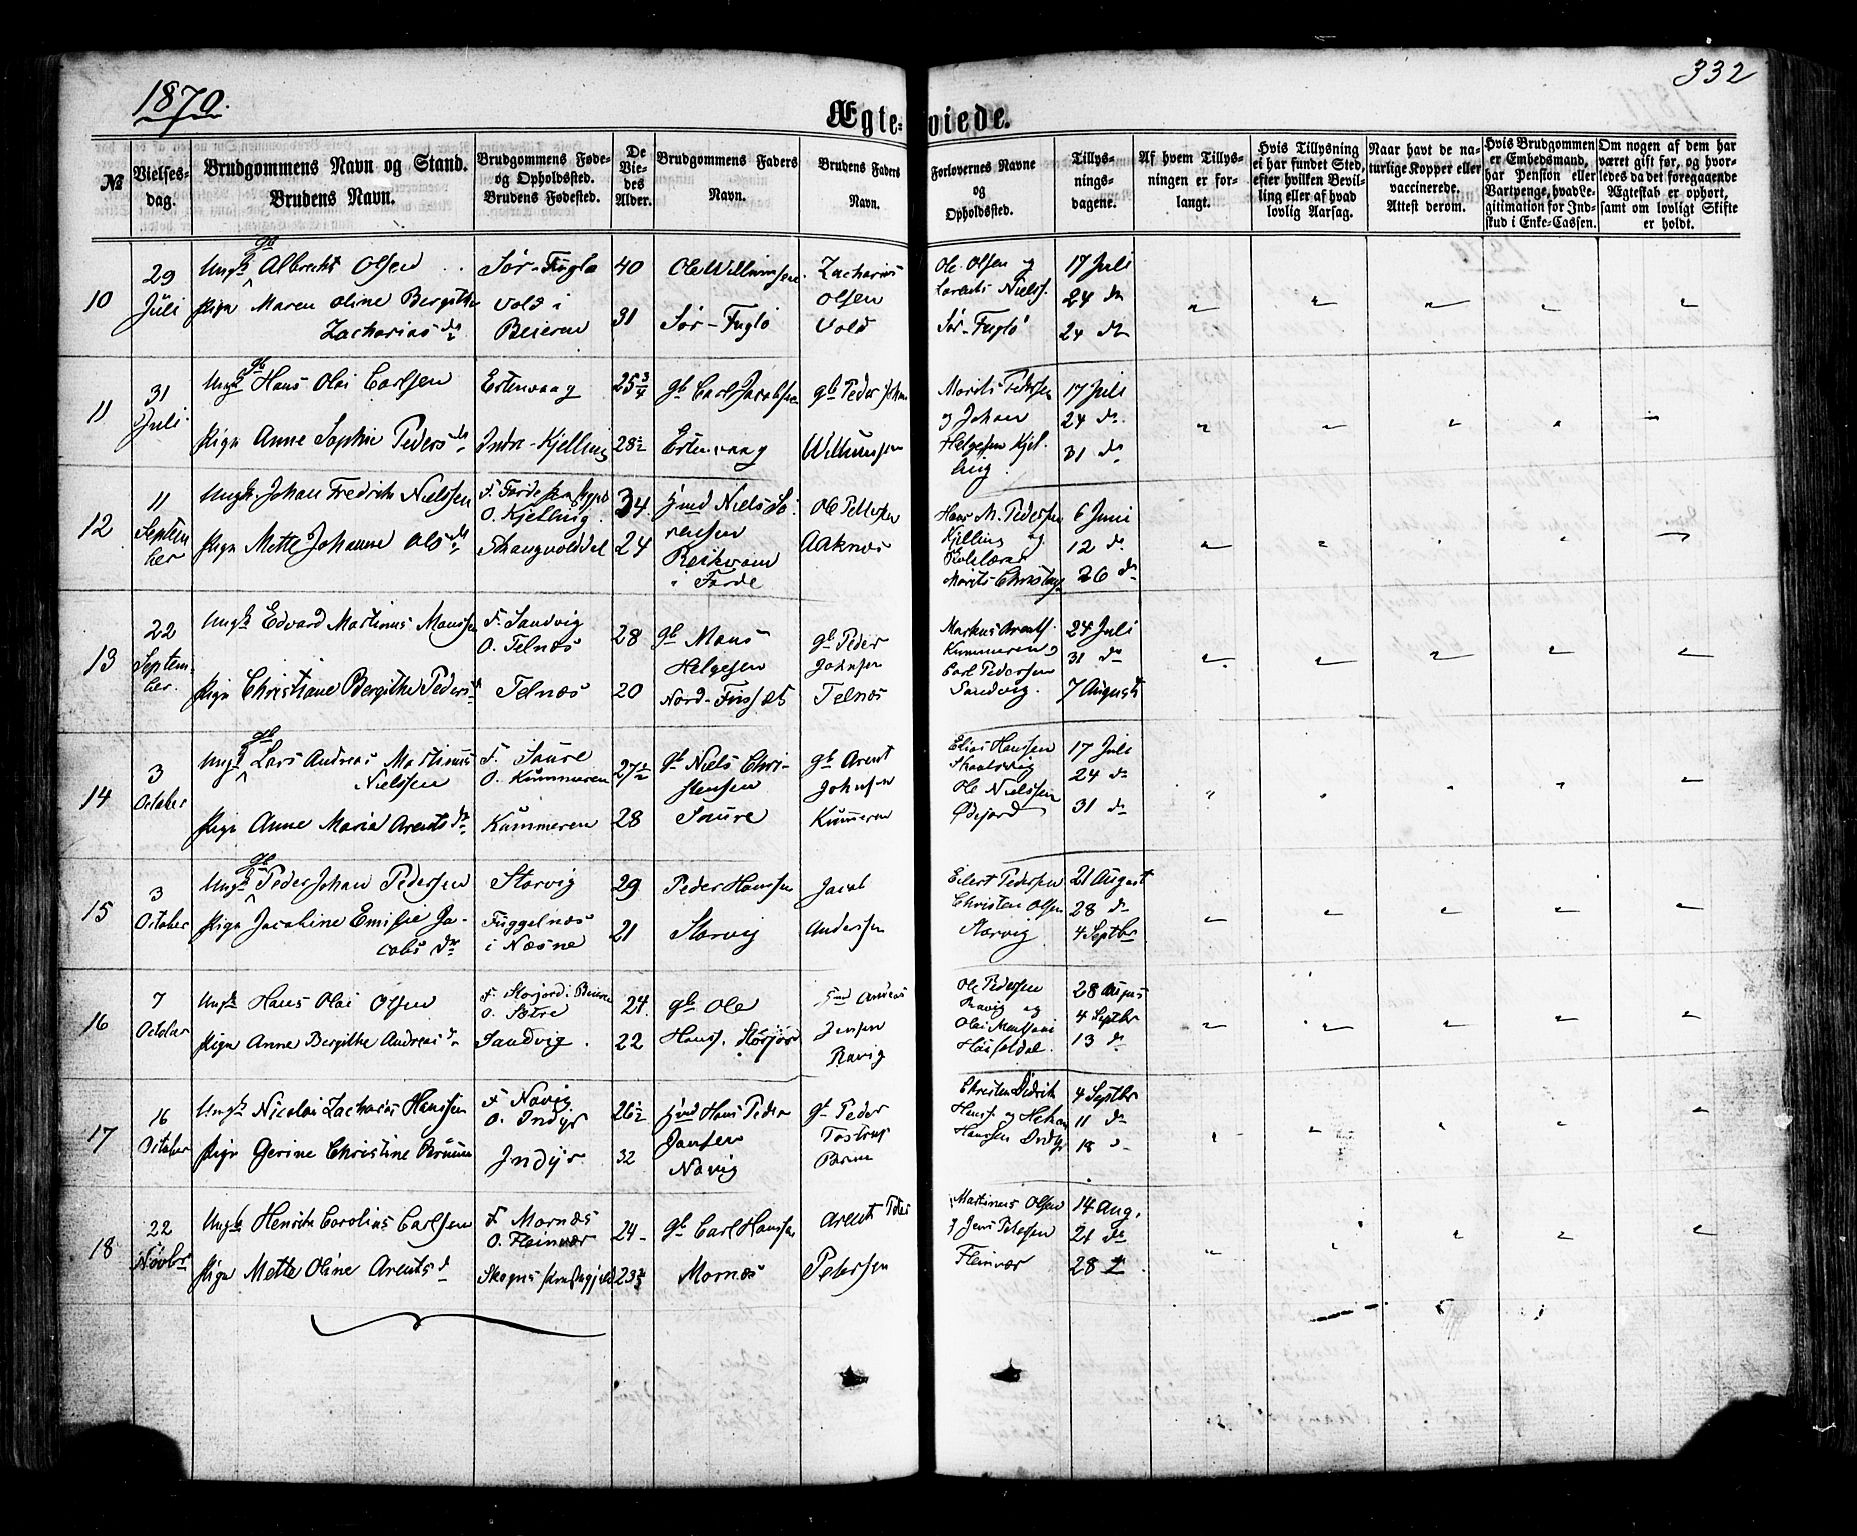 1870.
332
Ægte- viede.
№
Vielses-
dag.
Brudgommens Navn og Stand.
Brudens Navn.
Brudgommens Føde-
og Opholdssted.
Brudens Fødested.
De
Vie-
des
Alder.
Brudgommens Faders
Navn.
Brudens Faders
Navn.
Forlovernes Navne
og
Opholdssted.
Tillys-
nings-
dagene.
Af hvem Tillys-
ningen er for-
langt.
Hvis Tillysning
ei har fundet Sted,
efter hvilken Bevil-
ling eller af hvad
lovlig Aarsag.
Naar havt de na-
turlige Kopper eller
vaccinerede.
Attest derom.
Hvis Brudgommen
er Embedsmand,
har Pension eller
Vartpenge, hvad Le-
gitimation for Ind-
skud i Enke-Cassen.
Om nogen af dem har
været gift før, og hvor-
ledes da det foregaaende
Ægteskab er ophørt,
samt om lovligt Skifte
er holdt.
10
29
Juli
Ungk gb Albrecht Olsen
Pige Maren Oline Bergithe
Zacharias dr
Sør-Fuglø
Vold i
Beieren
40
31
Ole Willumsen
Sør-Fuglø
Zacharias
Olsen
Vold
Ole Olsen og
Lorents Nielss.
Sør-Fuglø
17 Juli
24 do
24 do
11
31
Juli
Ungk gb Hans Olai Carlsen
Pige Anne Sophie Peders dr
Estenvaag
Indre-Kjelling
25 3/4
28 1/2
gb Carl Jacobsen
Estenvaag
gb Peder Johan
Willumsen
Morits Pedersen
og Johan
Helgesen Kjel-
ling
17 Juli
24 do
31 do
12
11
Septem
ber
Ungk. Johan Fredrik Nielssen
Pige Mette Johanne Ols dr
F. Førde
O. Kjelling
34
24
Hmd Niels
i Førde
Ole Pettersen
Aaknes
Hans M. Pedersen
Kjelling og
6 Juni
12 do
26 do
13
22
Septem
ber.
Ungk Edvard Martinus Monssen
Pige Christiane Bergithe Peders dr
F. Sandvig
O. Telnæs
Telnæs
28
20
gb Mons
Helgesen
gb Peder
Johnsen
Telnæs
Markus Arents.
Kunmeren og
Carl Pedersen
Sandvig.
24 Juli
31 do
7 August
14
3
October
Ungk gb Lars Andreas Martinus
Nielssen
Pige Anne Maria Arents dr
F. Saure
O. Kunmeren
Kunmeren
27 1/2
28
gb Niels Chri-
stensen
Saure
gb Arent
Johnsen
Kunmeren
Elias Hanssen
Ole Nielssen
17 Juli
24 do
31 do
15
3
October
Ungk gb Peder Johan Pedersen
Pige Jacobine Emilie Ja-
cobs dr
Storvig
Fuggelnæs
i Næsne
29
21
Peder Hanssen
Storvig
Jacob
Andersen
Eilert Pedersen
Christen Olsen
Storvig
21 August
28 do
4 Septbr
16
7
October
Ungk Hans Olai Olsen
Pige Anne Bergithe Andreas dr
F. Storjord i Beieren
O. Sætre
Sandvig
24
22
gb Ole
Hanss.
Hmd Andreas
Jensen
Ravig
Ole Pedersen
Ravig og
28 August
4 Septbr
13 do
17
16
October
Ungk Nicolai Zacharias Hanssen
Pige Gerine Christine
F. Novig
O. Indyr
Indyr
26 1/2
32
Hmd Hans Peder
Jansen
Novig
gb Peder
Tostrup
Christen Didrik
Hanss. og
Hanssen Indyr
4 Septbr
11 do
18
18
22
Novbr
Ungk Henrik Carolius Carlsen
Pige Mette Oline Arents dr
F. Mornæs
O. Fleinvær
Skogns præstegjeld
24
23
gb Carl Hanssen
Mornæs
Arent Peder
Petersen
Martinus Olsen
og Jens Petersen
Fleinvær
14 Aug.
21 do
28